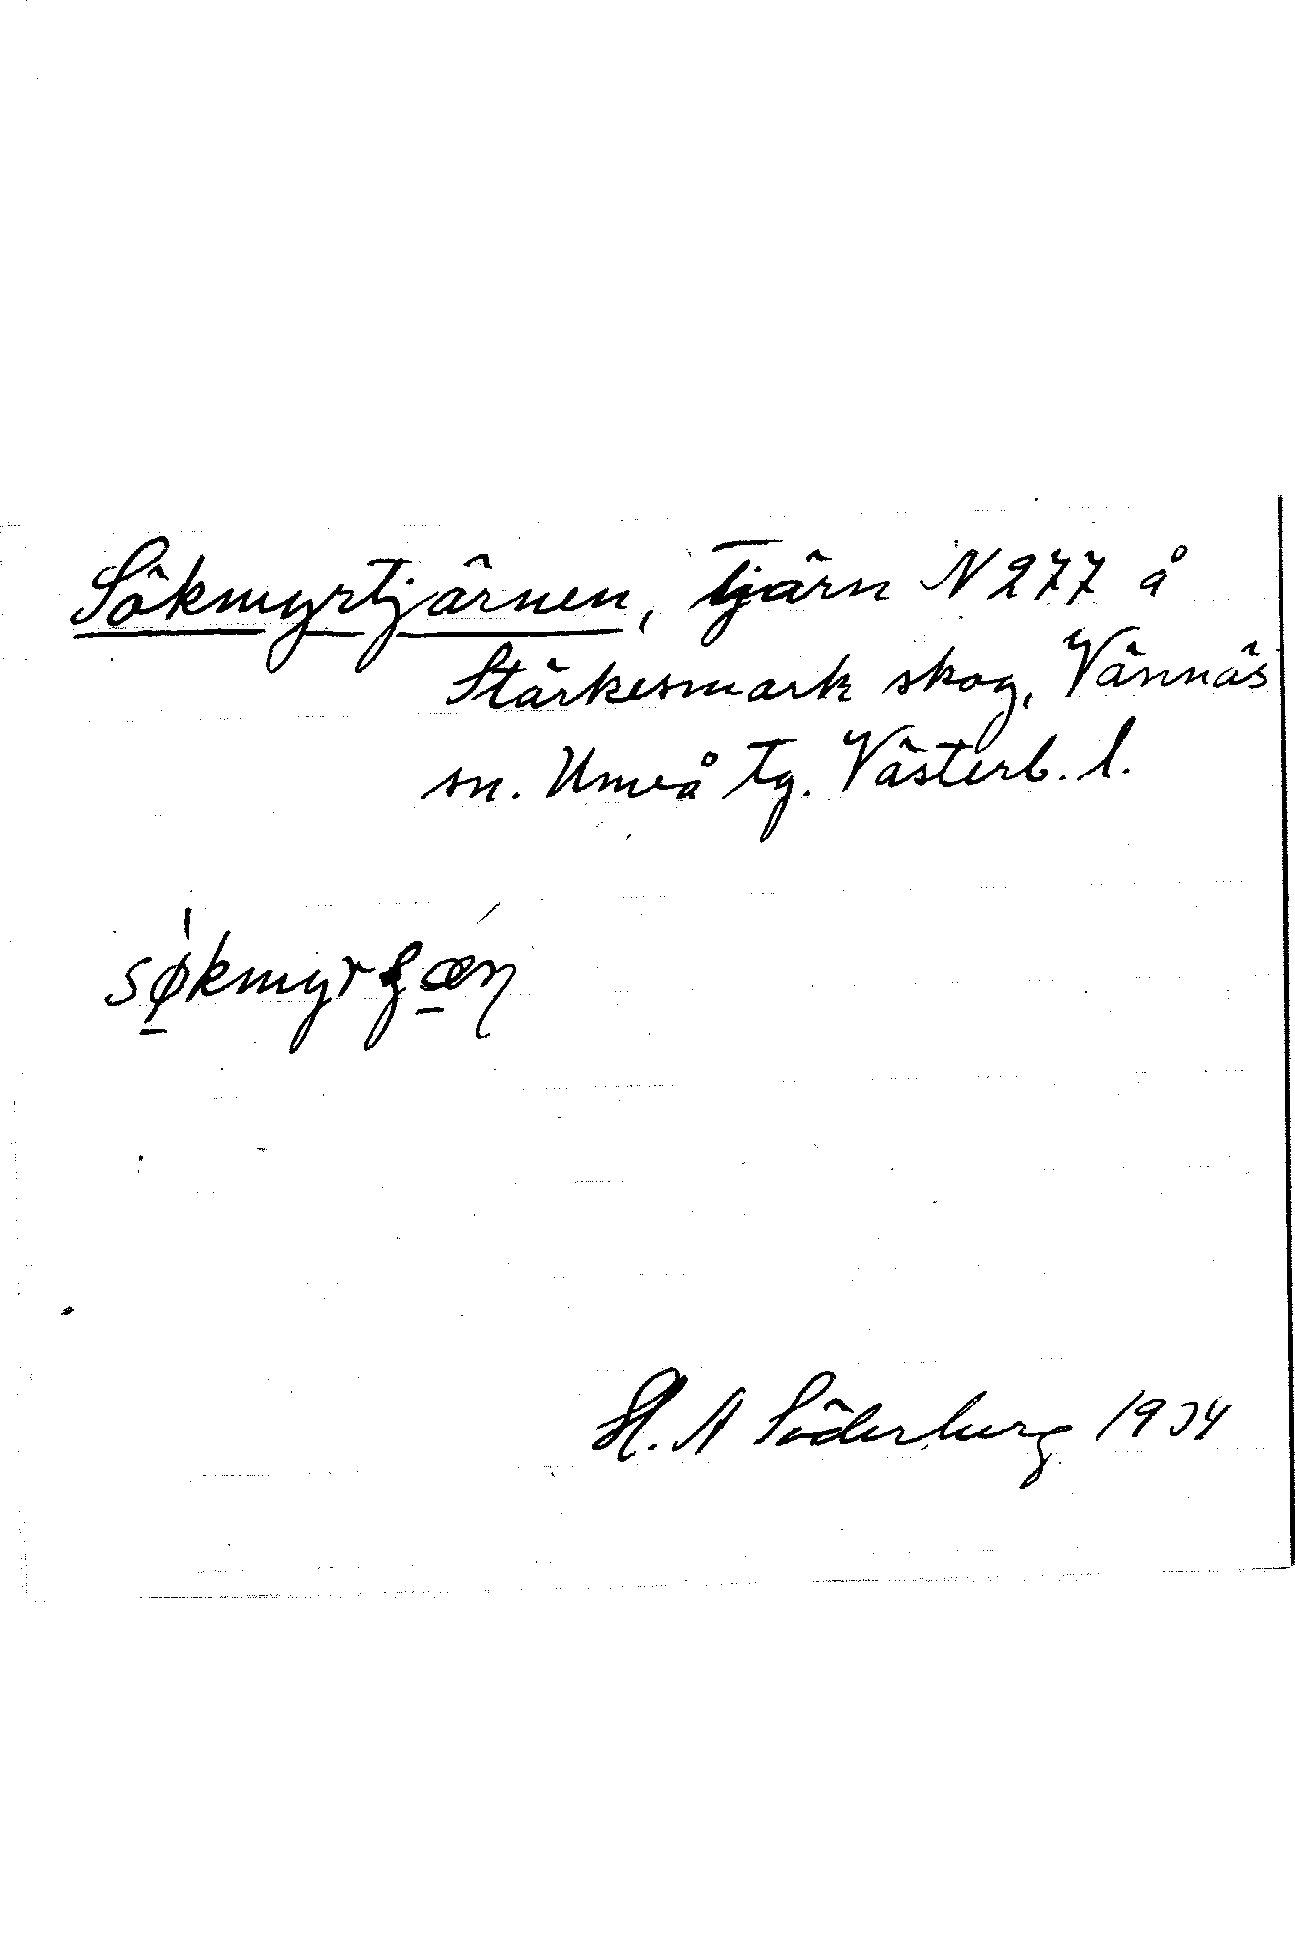 Sökmyrtjärnen, tjärn N 277 å
Stärkesmark skog, Vännäs
sn. Umeå tg. Västerb. l.
H. A Söderberg 1934